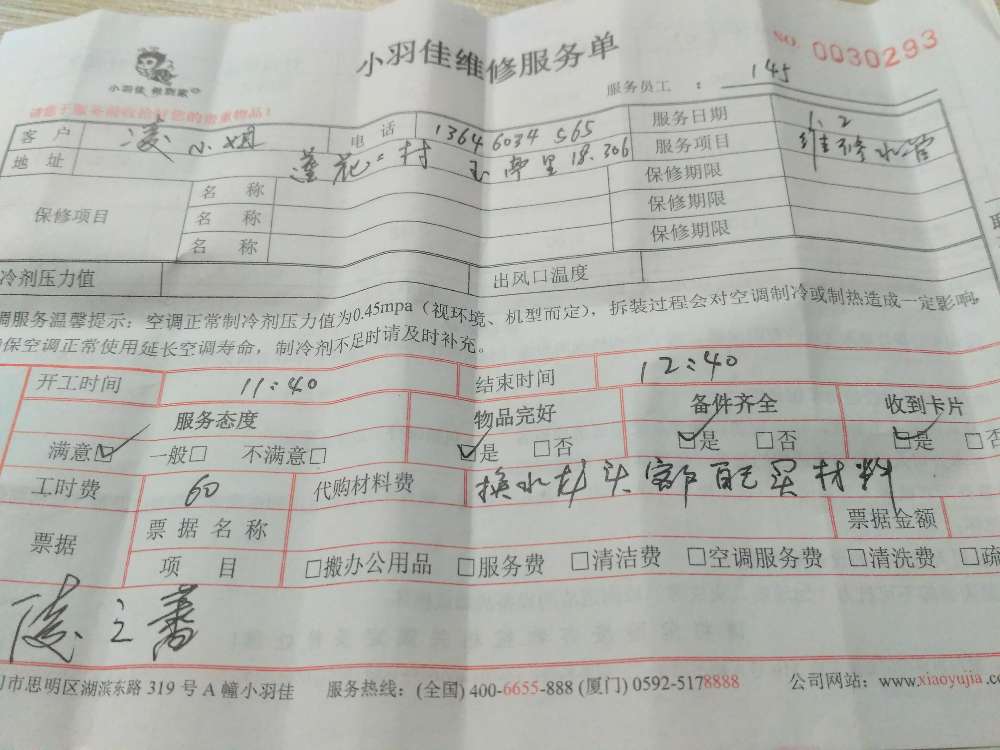 小羽佳维修服务单
NO. 0030293
小羽佳 做到家
服务员工 : 145
请您于服务前收拾好您的贵重物品!
客户 凌小姐 电话 1364 6034 565 服务日期 1.2
地址 莲花二村 里18.306 服务项目 维修水管
保修项目 名称 保修期限
名称 保修期限
名称 保修期限
冷剂压力值 出风口温度
调服务温馨提示：空调正常制冷剂压力值为0.45mpa（视环境、机型而定），拆装过程会对空调制冷或制热造成一定影响。
保空调正常使用延长空调寿命，制冷剂不足时请及时补充。
开工时间 11:40 结束时间 12:40
服务态度 物品完好 备件齐全 收到卡片
满意☑ 一般□ 不满意□ ☑是 □否 ☑是 □否 ☑是 □否
工时费 60 代购材料费 换水龙头客户自己买材料
票据 票据名称 票据金额
项目 □搬办公用品 □服务费 □清洁费 □空调服务费 □清洗费 □疏
门市思明区湖滨东路 319 号 A 幢小羽佳 服务热线：(全国) 400-6655-888 (厦门) 0592-5178888 公司网站：www.xiaoyujia.co